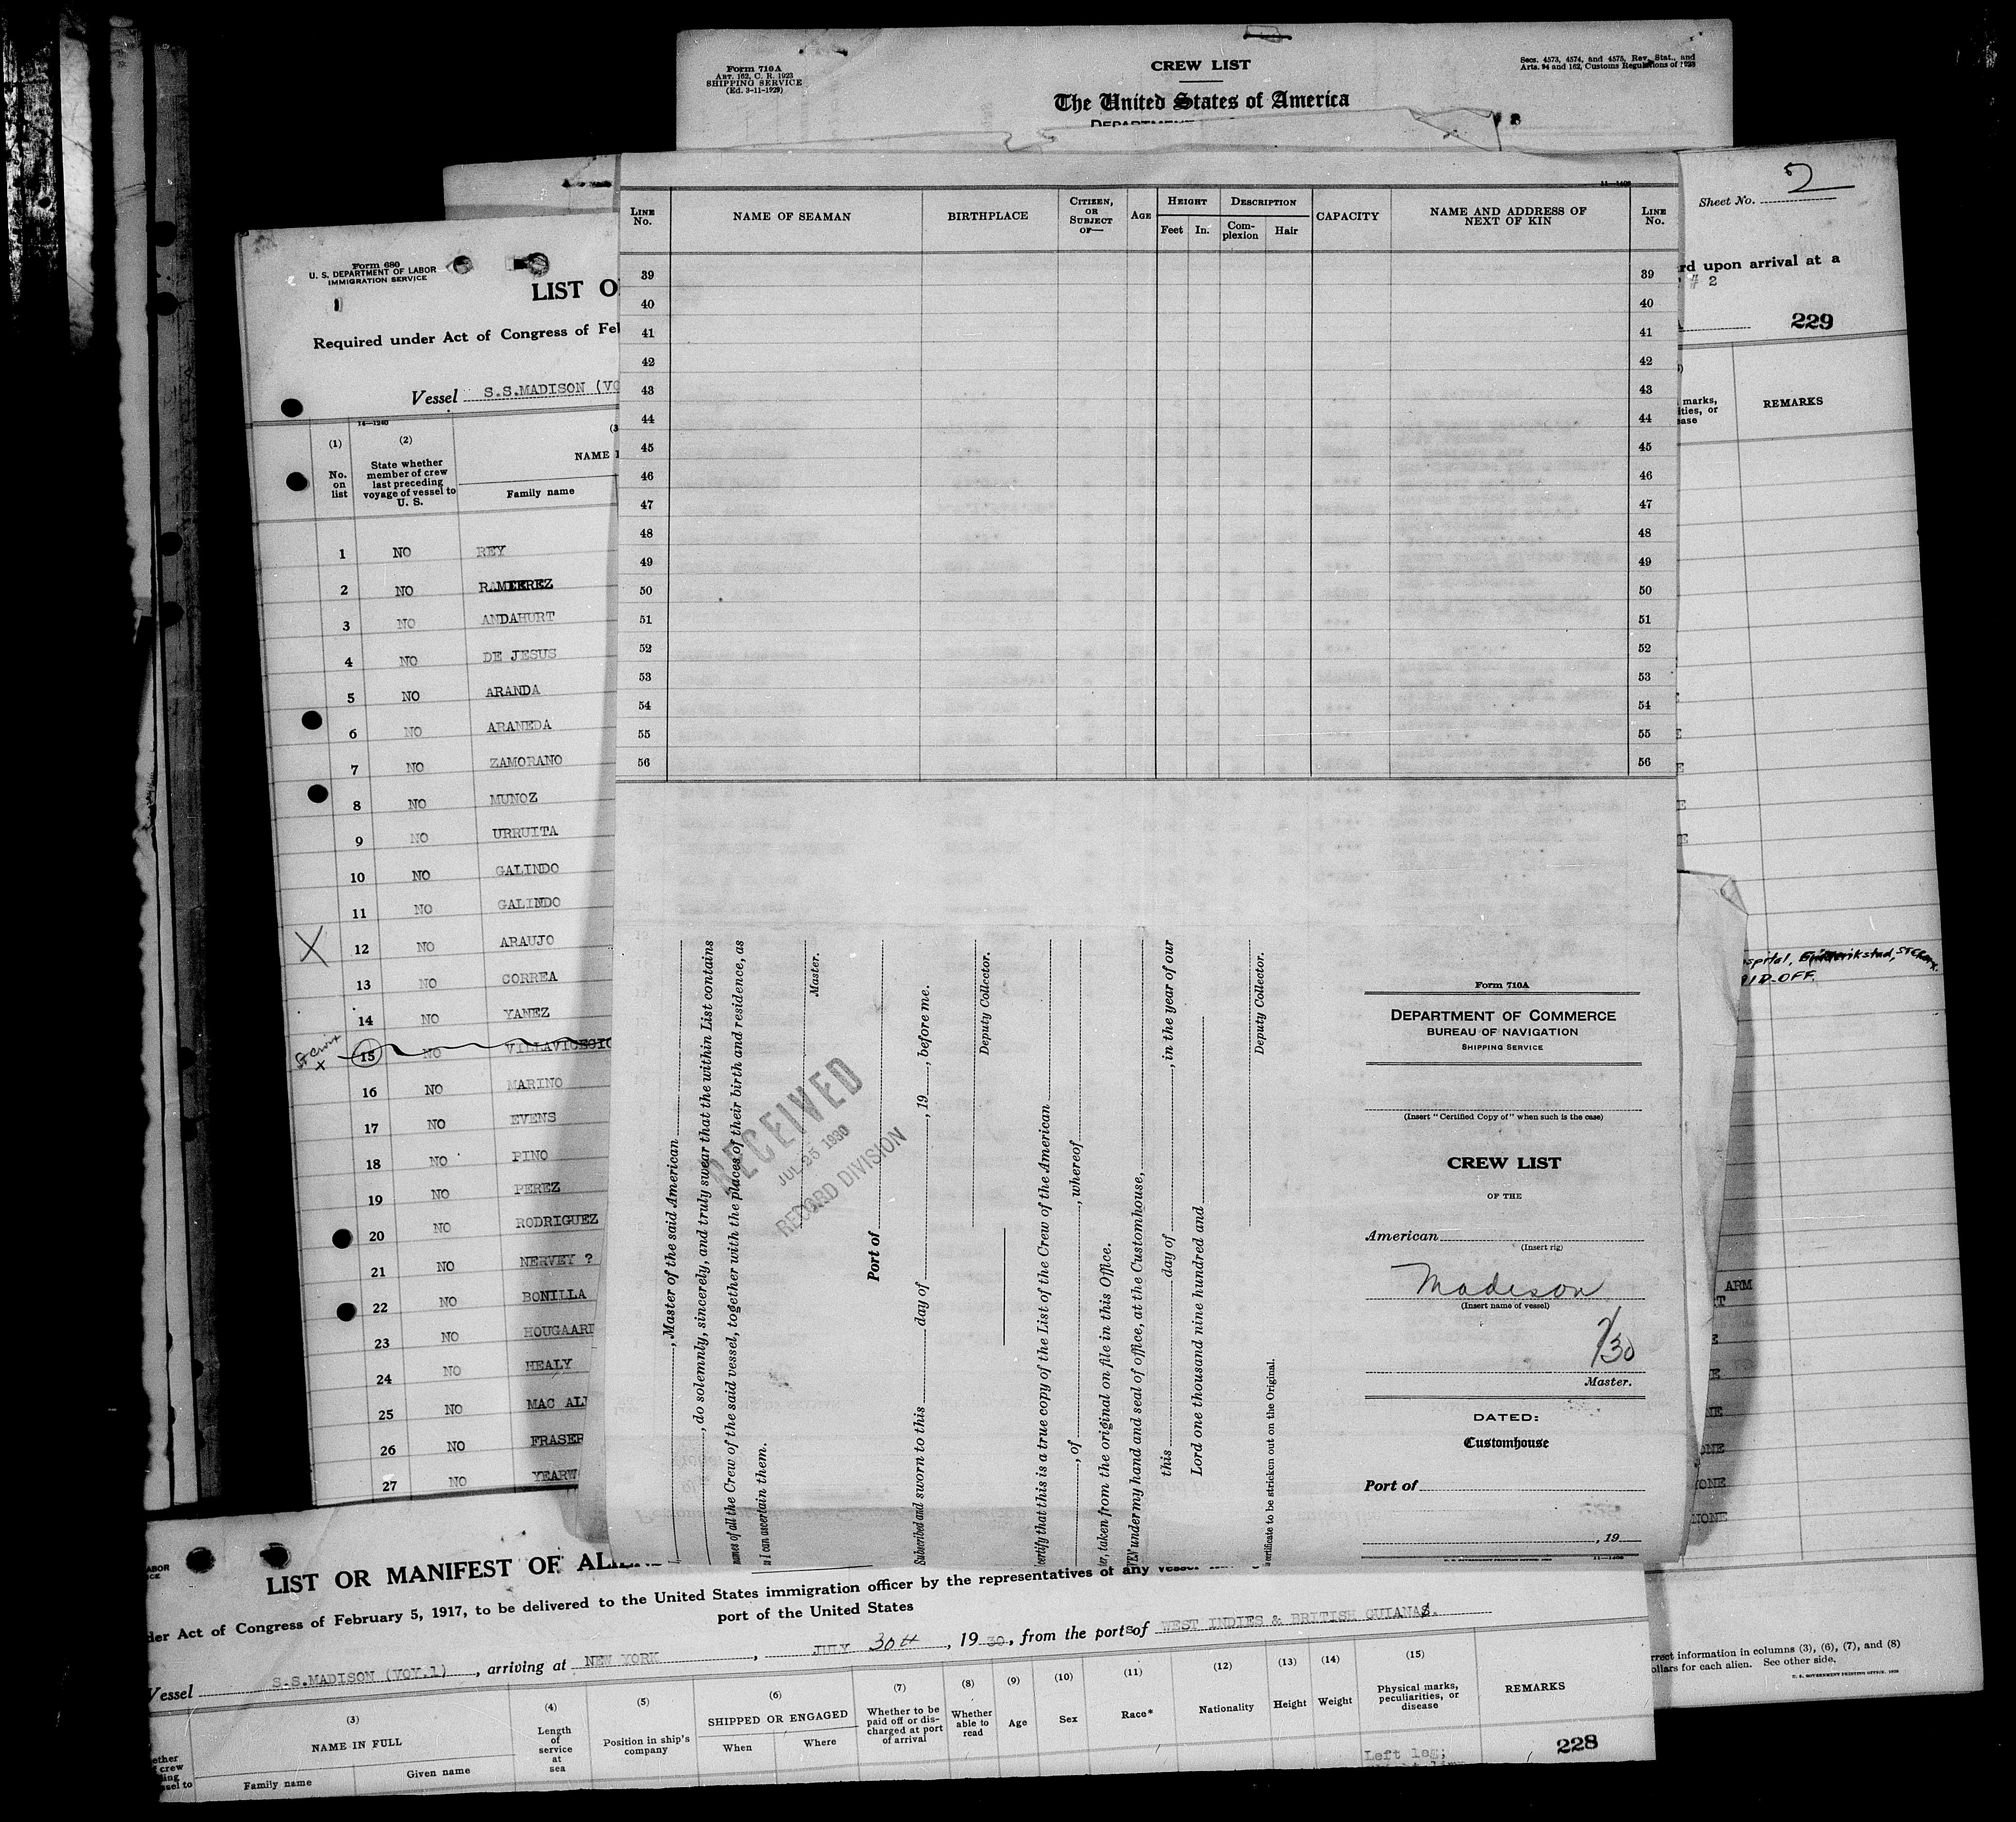 Form 710A
ART. 162, C. R. 1923
SHIPPING SERVICE
(Ed. 3-11-1929)
CREW LIST
The United States of America
Secs. 4573, 4574, and 4575, Rev. Stat., and
Arts. 94 and 162, Customs Regulations of 1923
LINE No.
NAME OF SEAMAN
BIRTHPLACE
CITIZEN, OR SUBJECT OF—
AGE
HEIGHT
Feet
In.
DESCRIPTION
Complexion
Hair
CAPACITY
NAME AND ADDRESS OF NEXT OF KIN
LINE No.
39 39
40 40
41 41
42 42
43 43
44 44
45 45
46 46
47 47
48 48
49 49
50 50
51 51
52 52
53 53
54 54
55 55
56 56
Sheet No. 2
rd upon arrival at a
# 2
229
marks,
ities, or
ease
REMARKS
Form 680
U. S. DEPARTMENT OF LABOR
IMMIGRATION SERVICE
LIST O
Required under Act of Congress of Fe
Vessel S.S.MADISON (VO
14—1240
(1)
No. on list
(2)
State whether member of crew last preceding voyage of vessel to U. S.
(3
NAME I
Family name
1 NO REY
2 NO
3 NO ANDAHURT
4 NO DE JESUS
5 NO ARANDA
6 NO ARANEDA
7 NO ZAMORANO
8 NO MUNOZ
9 NO URRUITA
10 NO GALINDO
11 NO GALINDO
X 12 NO ARAUJO
13 NO CORREA
14 NO YANEZ
St Croix x 15 NO
16 NO MARINO
17 NO EVENS
18 NO PINO
19 NO PEREZ
20 NO RODRIGUEZ
21 NO NERVEY ?
22 NO BONILLA
23 NO HOUGAARD
24 NO HEALY
25 NO MAC AL
26 NO FRASER
27 NO YEARW
, Master of the said American
, do solemnly, sincerely, and truly swear that the within List contains
names of all the Crew of the said vessel, together with the places of their birth and residence, as
I can ascertain them.
Master.
Port of
Subscribed and sworn to this day of , 19 , before me.
Deputy Collector.
certify that this is a true copy of the List of the Crew of the American
, of , whereof
, taken from the original on file in this Office.
under my hand and seal of office, at the Customhouse,
this day of , in the year of our
Lord one thousand nine hundred and
Deputy Collector.
certificate to be stricken out on the Original.
RECEIVED
JUL 25 1930
RECORD DIVISION
Form 710A
DEPARTMENT OF COMMERCE
BUREAU OF NAVIGATION
SHIPPING SERVICE
(Insert "Certified Copy of" when such is the case)
CREW LIST
OF THE
American
(Insert rig)
Madison
(Insert name of vessel)
7/30
Master.
DATED:
Customhouse
Port of
, 19
11—1406
spital, St Croix.
OFF.
ARM
NE
ONE
ONE
NONE
rrect information in columns (3), (6), (7), and (8)
ollars for each alien. See other side.
U. S. GOVERNMENT PRINTING OFFICE
LABOR
ICE
LIST OR MANIFEST OF ALIEN
der Act of Congress of February 5, 1917, to be delivered to the United States immigration officer by the representatives of any vessel
port of the United States
Vessel S.S.MADISON (VOY.1) , arriving at NEW YORK , JULY 30th , 19 30, from the ports of WEST INDIES & BRITISH GUIANAS.
ether
f crew
ding
ssel to
(3)
NAME IN FULL
Family name
Given name
(4)
Length of service at sea
(5)
Position in ship's company
(6)
SHIPPED OR ENGAGED
When
Where
(7)
Whether to be paid off or discharged at port of arrival
(8)
Whether able to read
(9)
Age
(10)
Sex
(11)
Race*
(12)
Nationality
(13)
Height
(14)
Weight
(15)
Physical marks, peculiarities, or disease
REMARKS
Left leg;
228